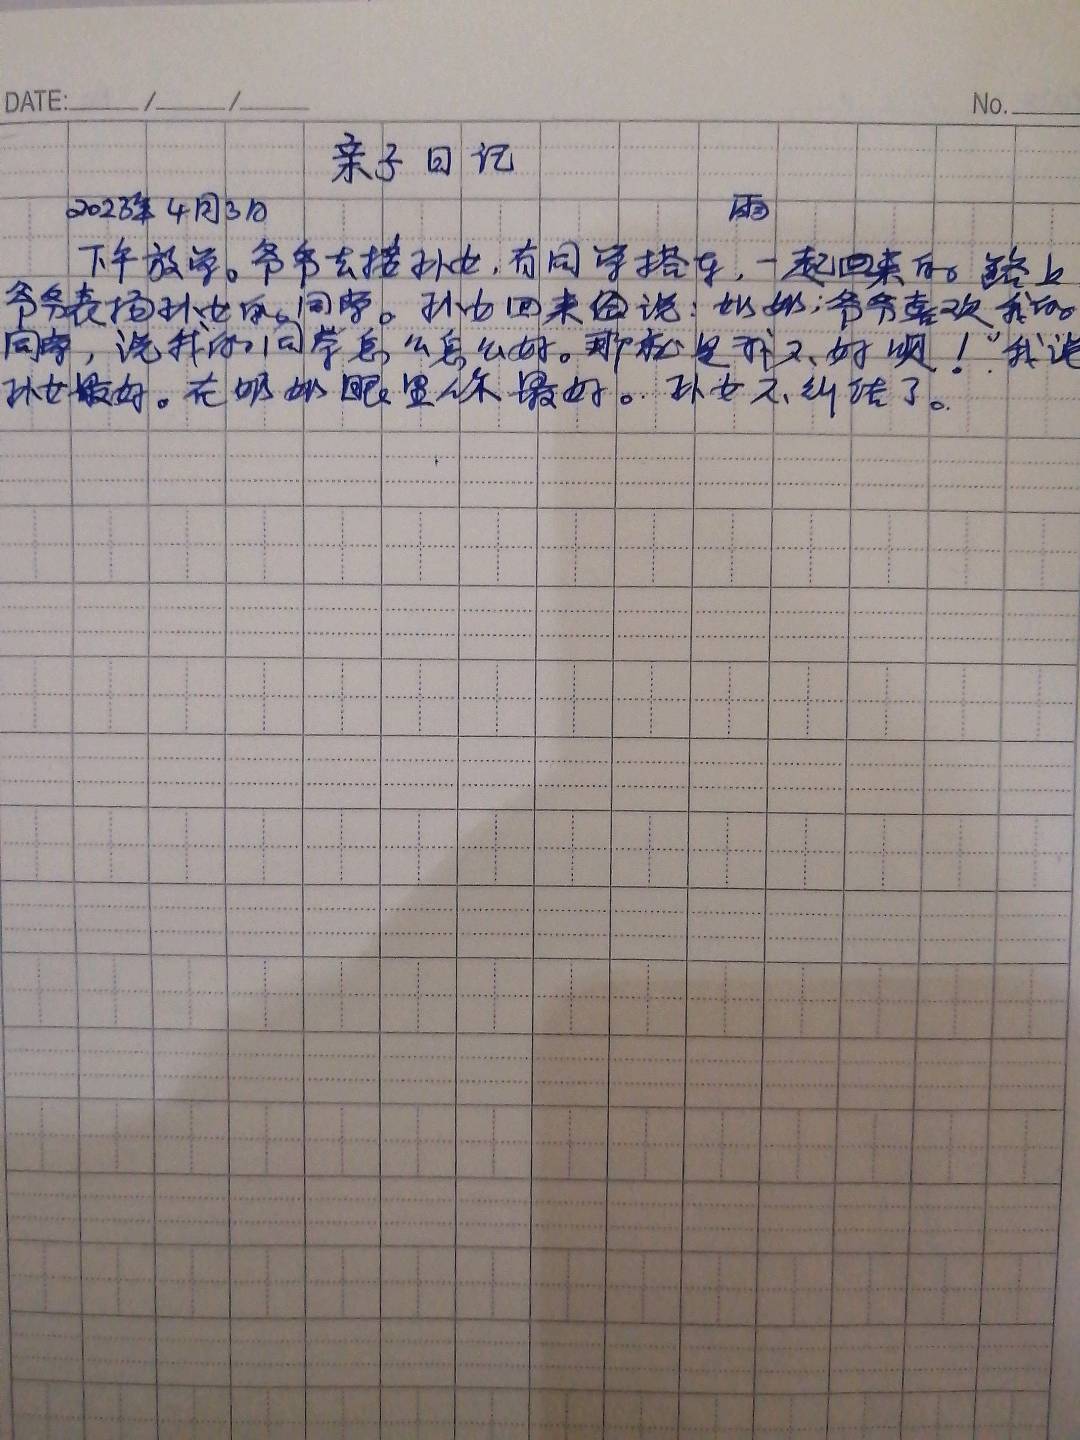 DATE: / /
No.
亲子日记
2023年4月3日 雨
下午放学。爷爷去接孙女,有同学搭车,一起回来的。路上
爷爷表扬孙女的同学。孙女回来说:奶奶;爷爷喜欢我的
同学,说我的同学怎么怎么好。那就是我不好呗!"我说
孙女最好。在奶奶眼里你最好。孙女不纠结了。